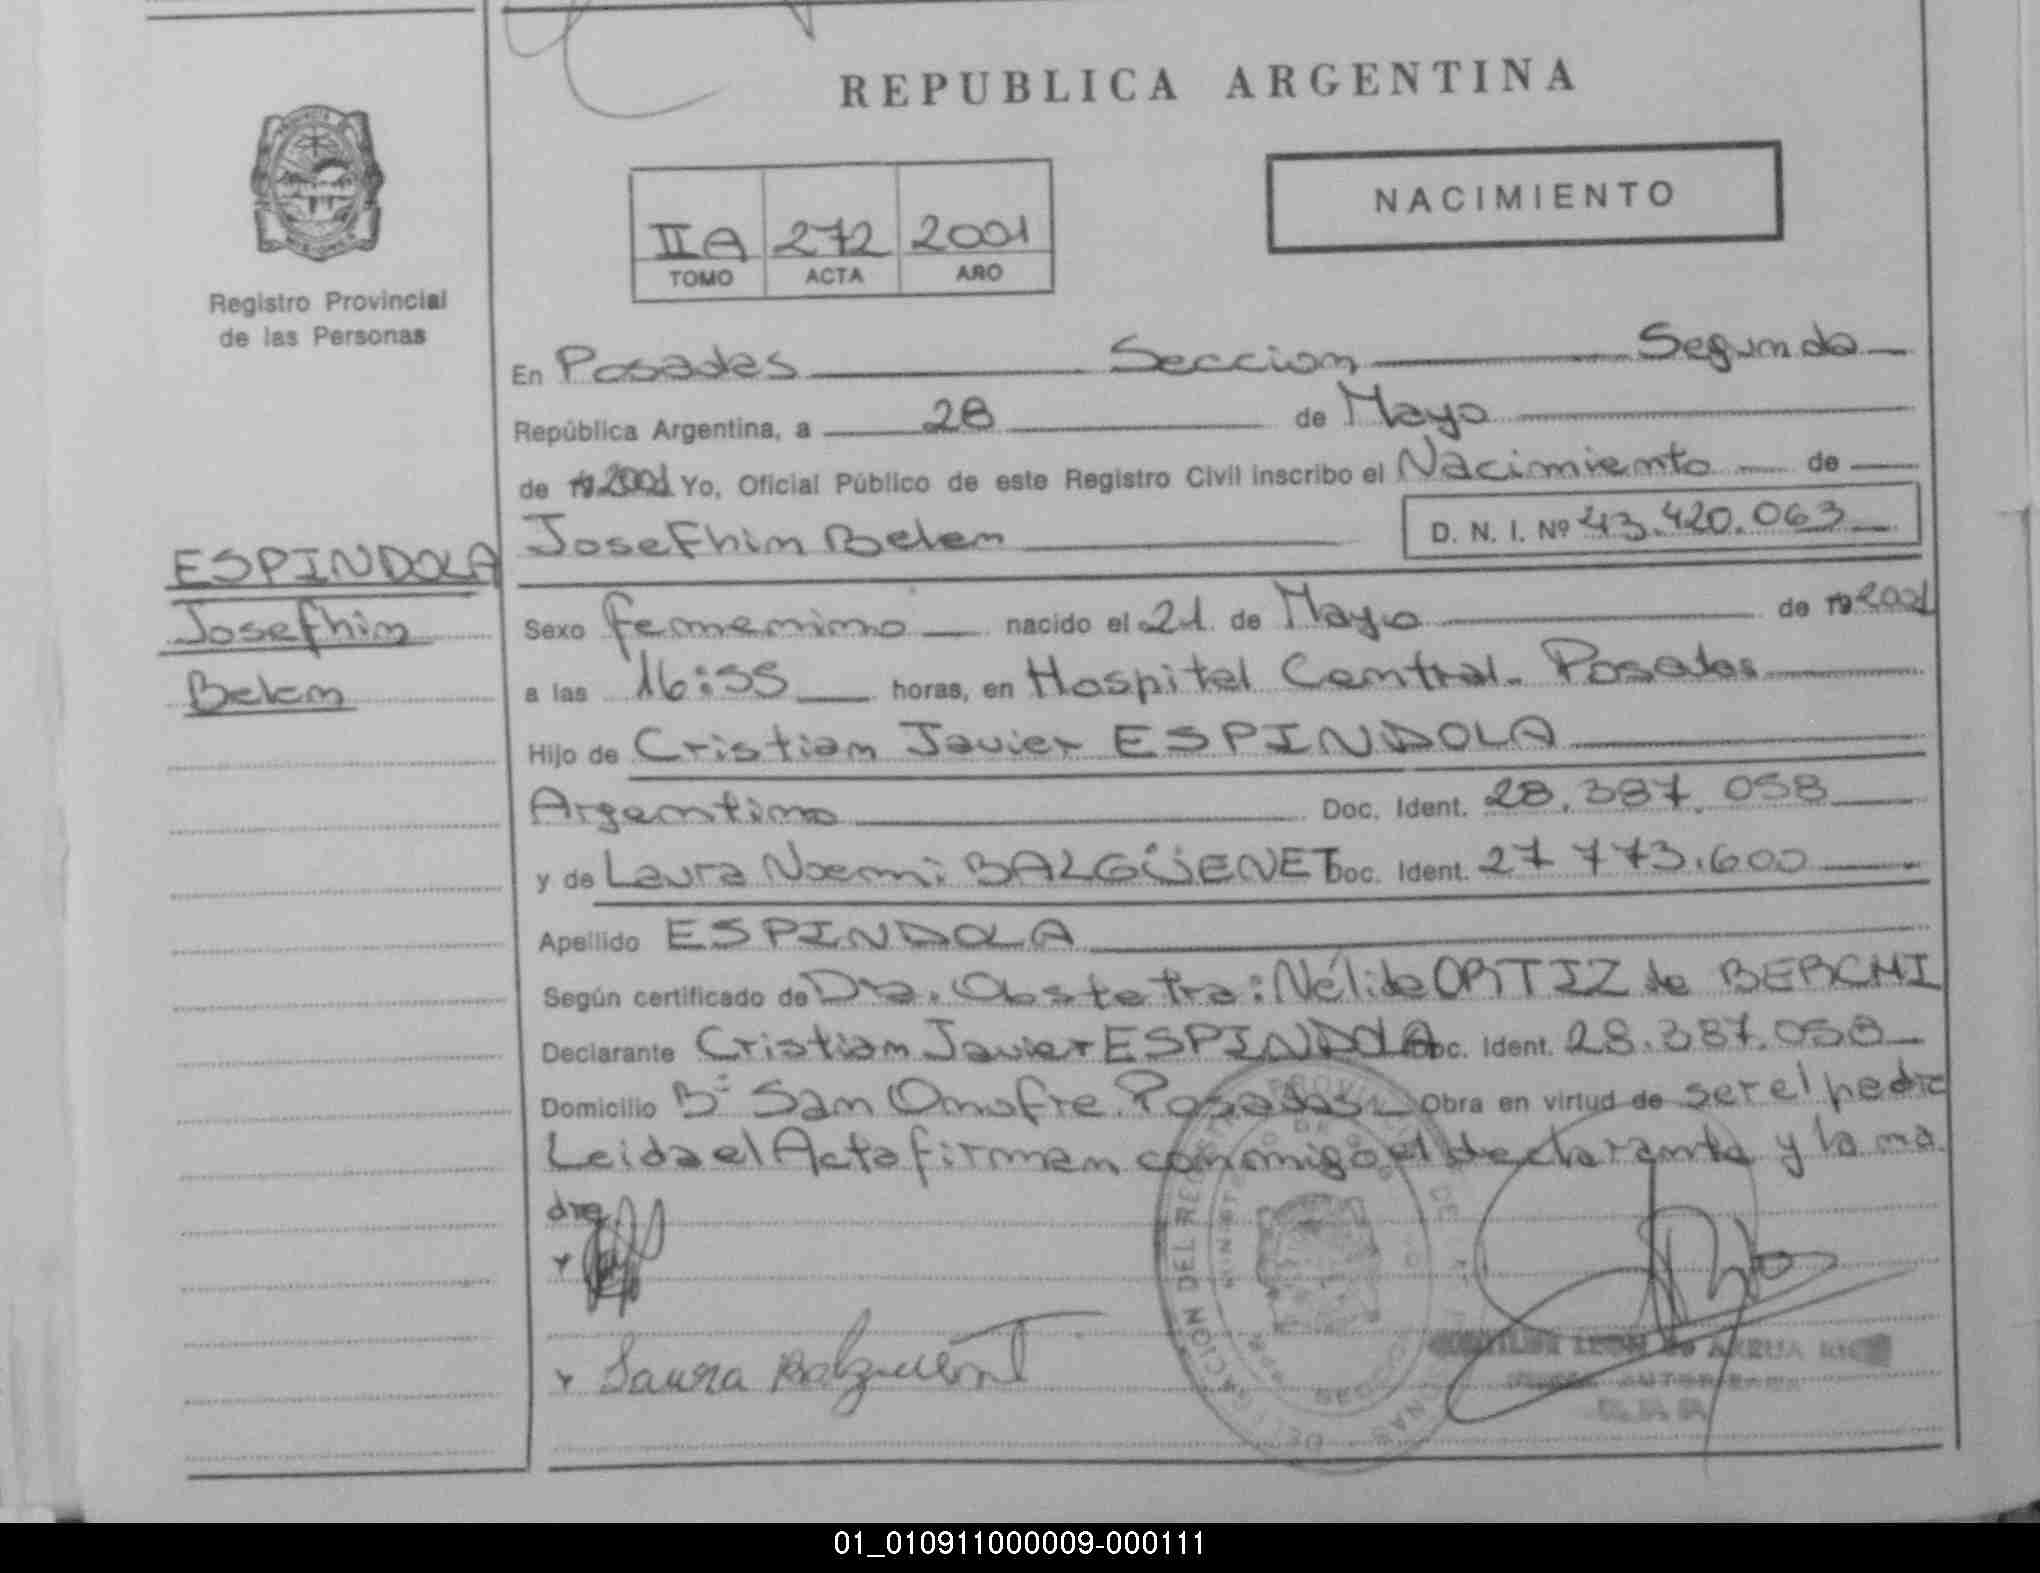 REPUBLICA ARGENTINA
NACIMIENTO
IIA 272 2001
TOMO ACTA AÑO
Registro Provincial
de las Personas
En Posadas Seccion Segunda
República Argentina, a 28 de Mayo
de 19 2001 Yo, Oficial Público de este Registro Civil inscribo el Nacimiento de
Josefhin Belen D. N. I. Nº 43.420.063
ESPINDOLA
Josefhin
Belen
Sexo femenino nacido el 21 de Mayo de 19 2001
a las 16:55 horas, en Hospital Central. Posadas
Hijo de Cristian Javier ESPINDOLA
Argentino Doc. Ident. 28.387.058
y de Laura Noemi BALGÜENET Doc. Ident. 27 773.600
Apellido ESPINDOLA
Según certificado de Dra. Obstetra: Nélida ORTIZ de BERCHI
Declarante Cristian Javier ESPINDOLA Doc. Ident. 28.387.058
Domicilio Bº San Onofre. Posadas Obra en virtud de ser el padre
Leida el Acta firman conmigo el declarante y la ma
dre
Laura Balguenet
DELEGACION DEL REGISTRO PROVINCIAL DE
01_010911000009-000111